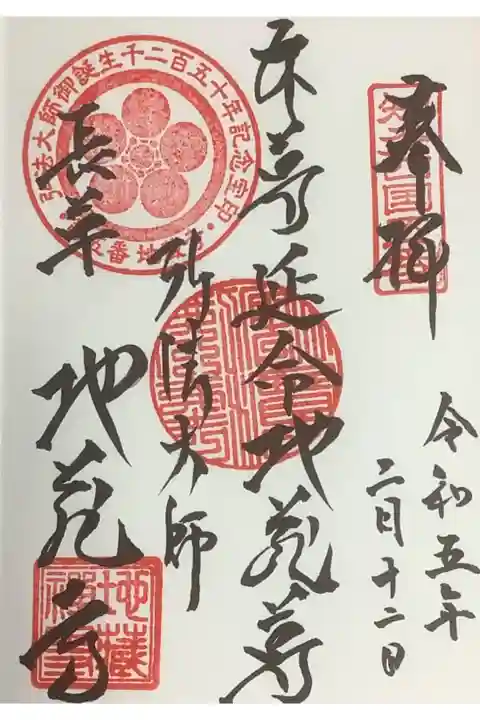 奉拝
令和五年
二月十二日
本尊延命地蔵尊
弘法大師
長草 地蔵寺
弘法大師御誕生千二百五十年記念宝印
地蔵禅寺